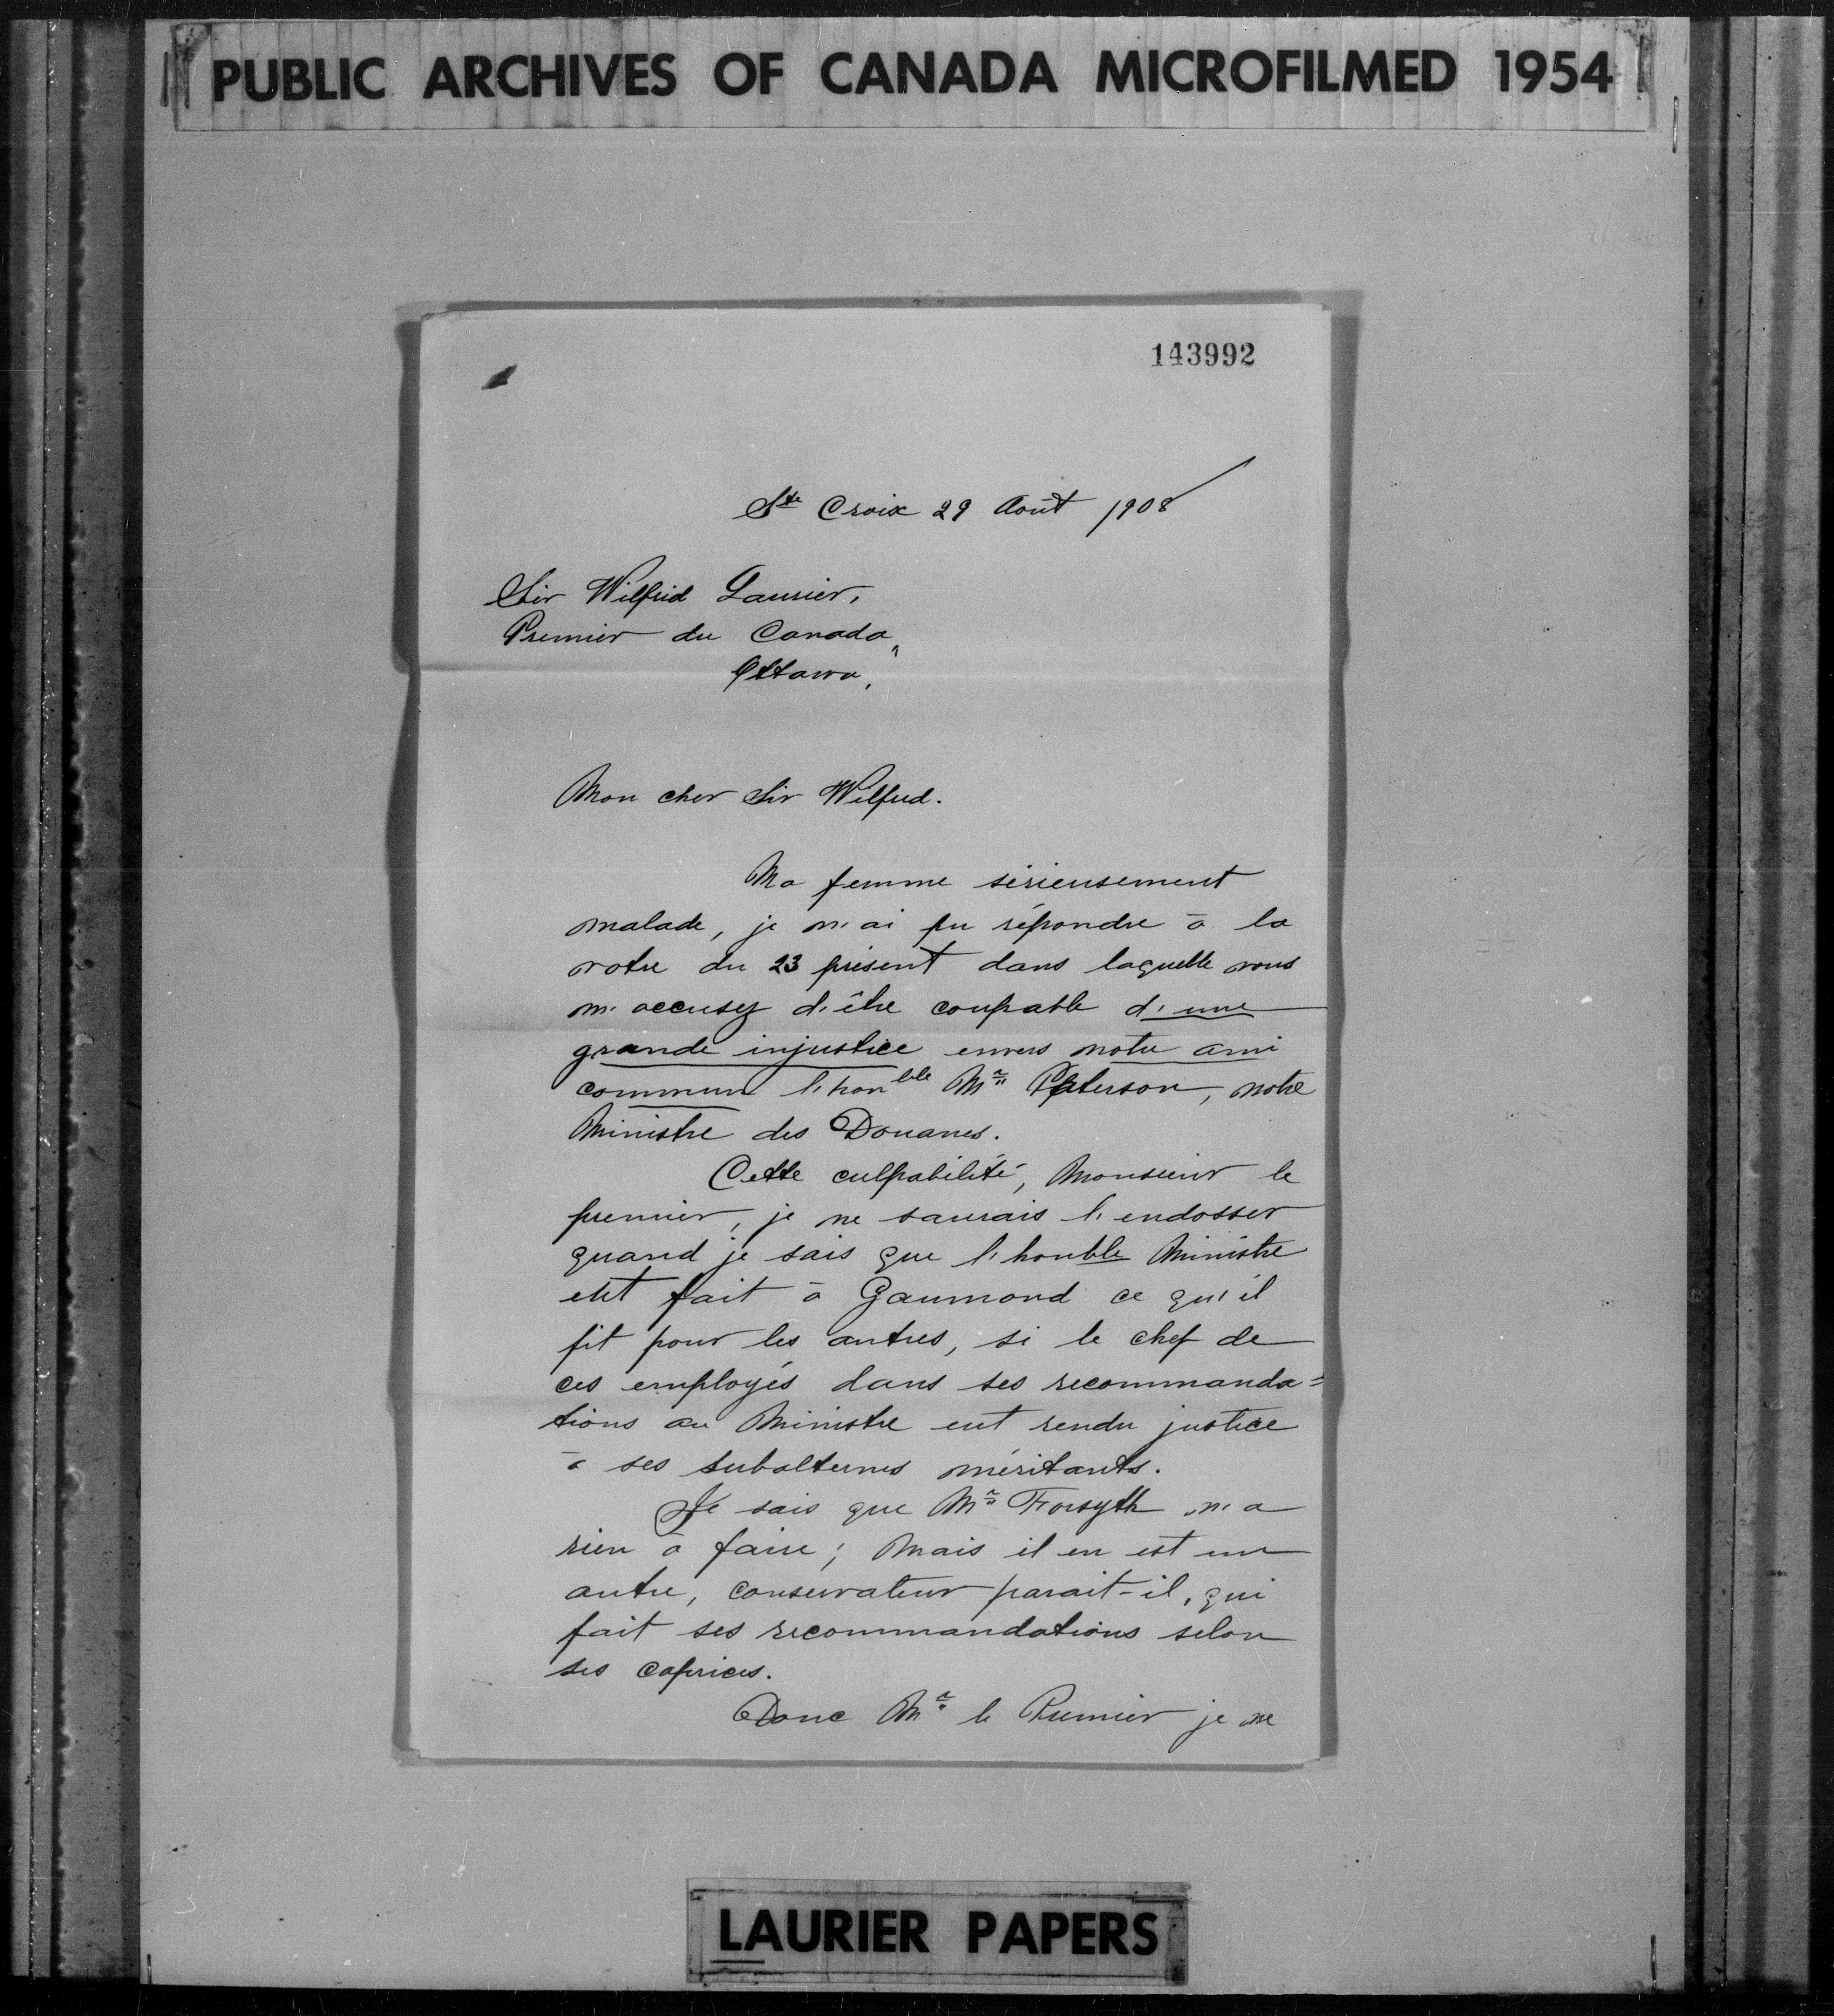 PUBLIC ARCHIVES OF CANADA MICROFILMED 1954
143992
Ste Croix 29 Août 1908
Sir Wilfrid Laurier,
Premier du Canada,
Ottawa,
Mon cher Sir Wilfrid.
Ma femme sérieusement
malade, je n'ai pu répondre à la
votre du 23 présent dans laquelle vous
m'accusez d'être coupable d'une
grande injustice envers notre ami
commun l'honble Mr Paterson, notre
Ministre des Douanes.
Cette culpabilité, Monsieur le
premier, je ne saurais l'endosser
quand je sais que l'honble Ministre
eut fait à Gaumond ce qu'il
fit pour les autres, si le chef de
ces employés dans ses recommanda=
tions au Ministre eut rendu justice
à ses subalternes méritants.
Je sais que Mr Forsyth n'a
rien à faire; Mais il en est un
autre, conservateur parait-il, qui
fait ses recommandations selon
ses caprices.
Donc Mr le Premier je ne
LAURIER PAPERS